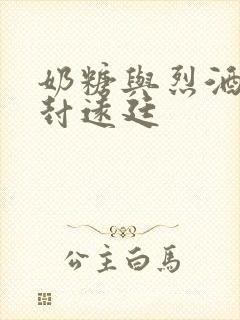 奶糖與烈酒
封遠廷
公主白馬